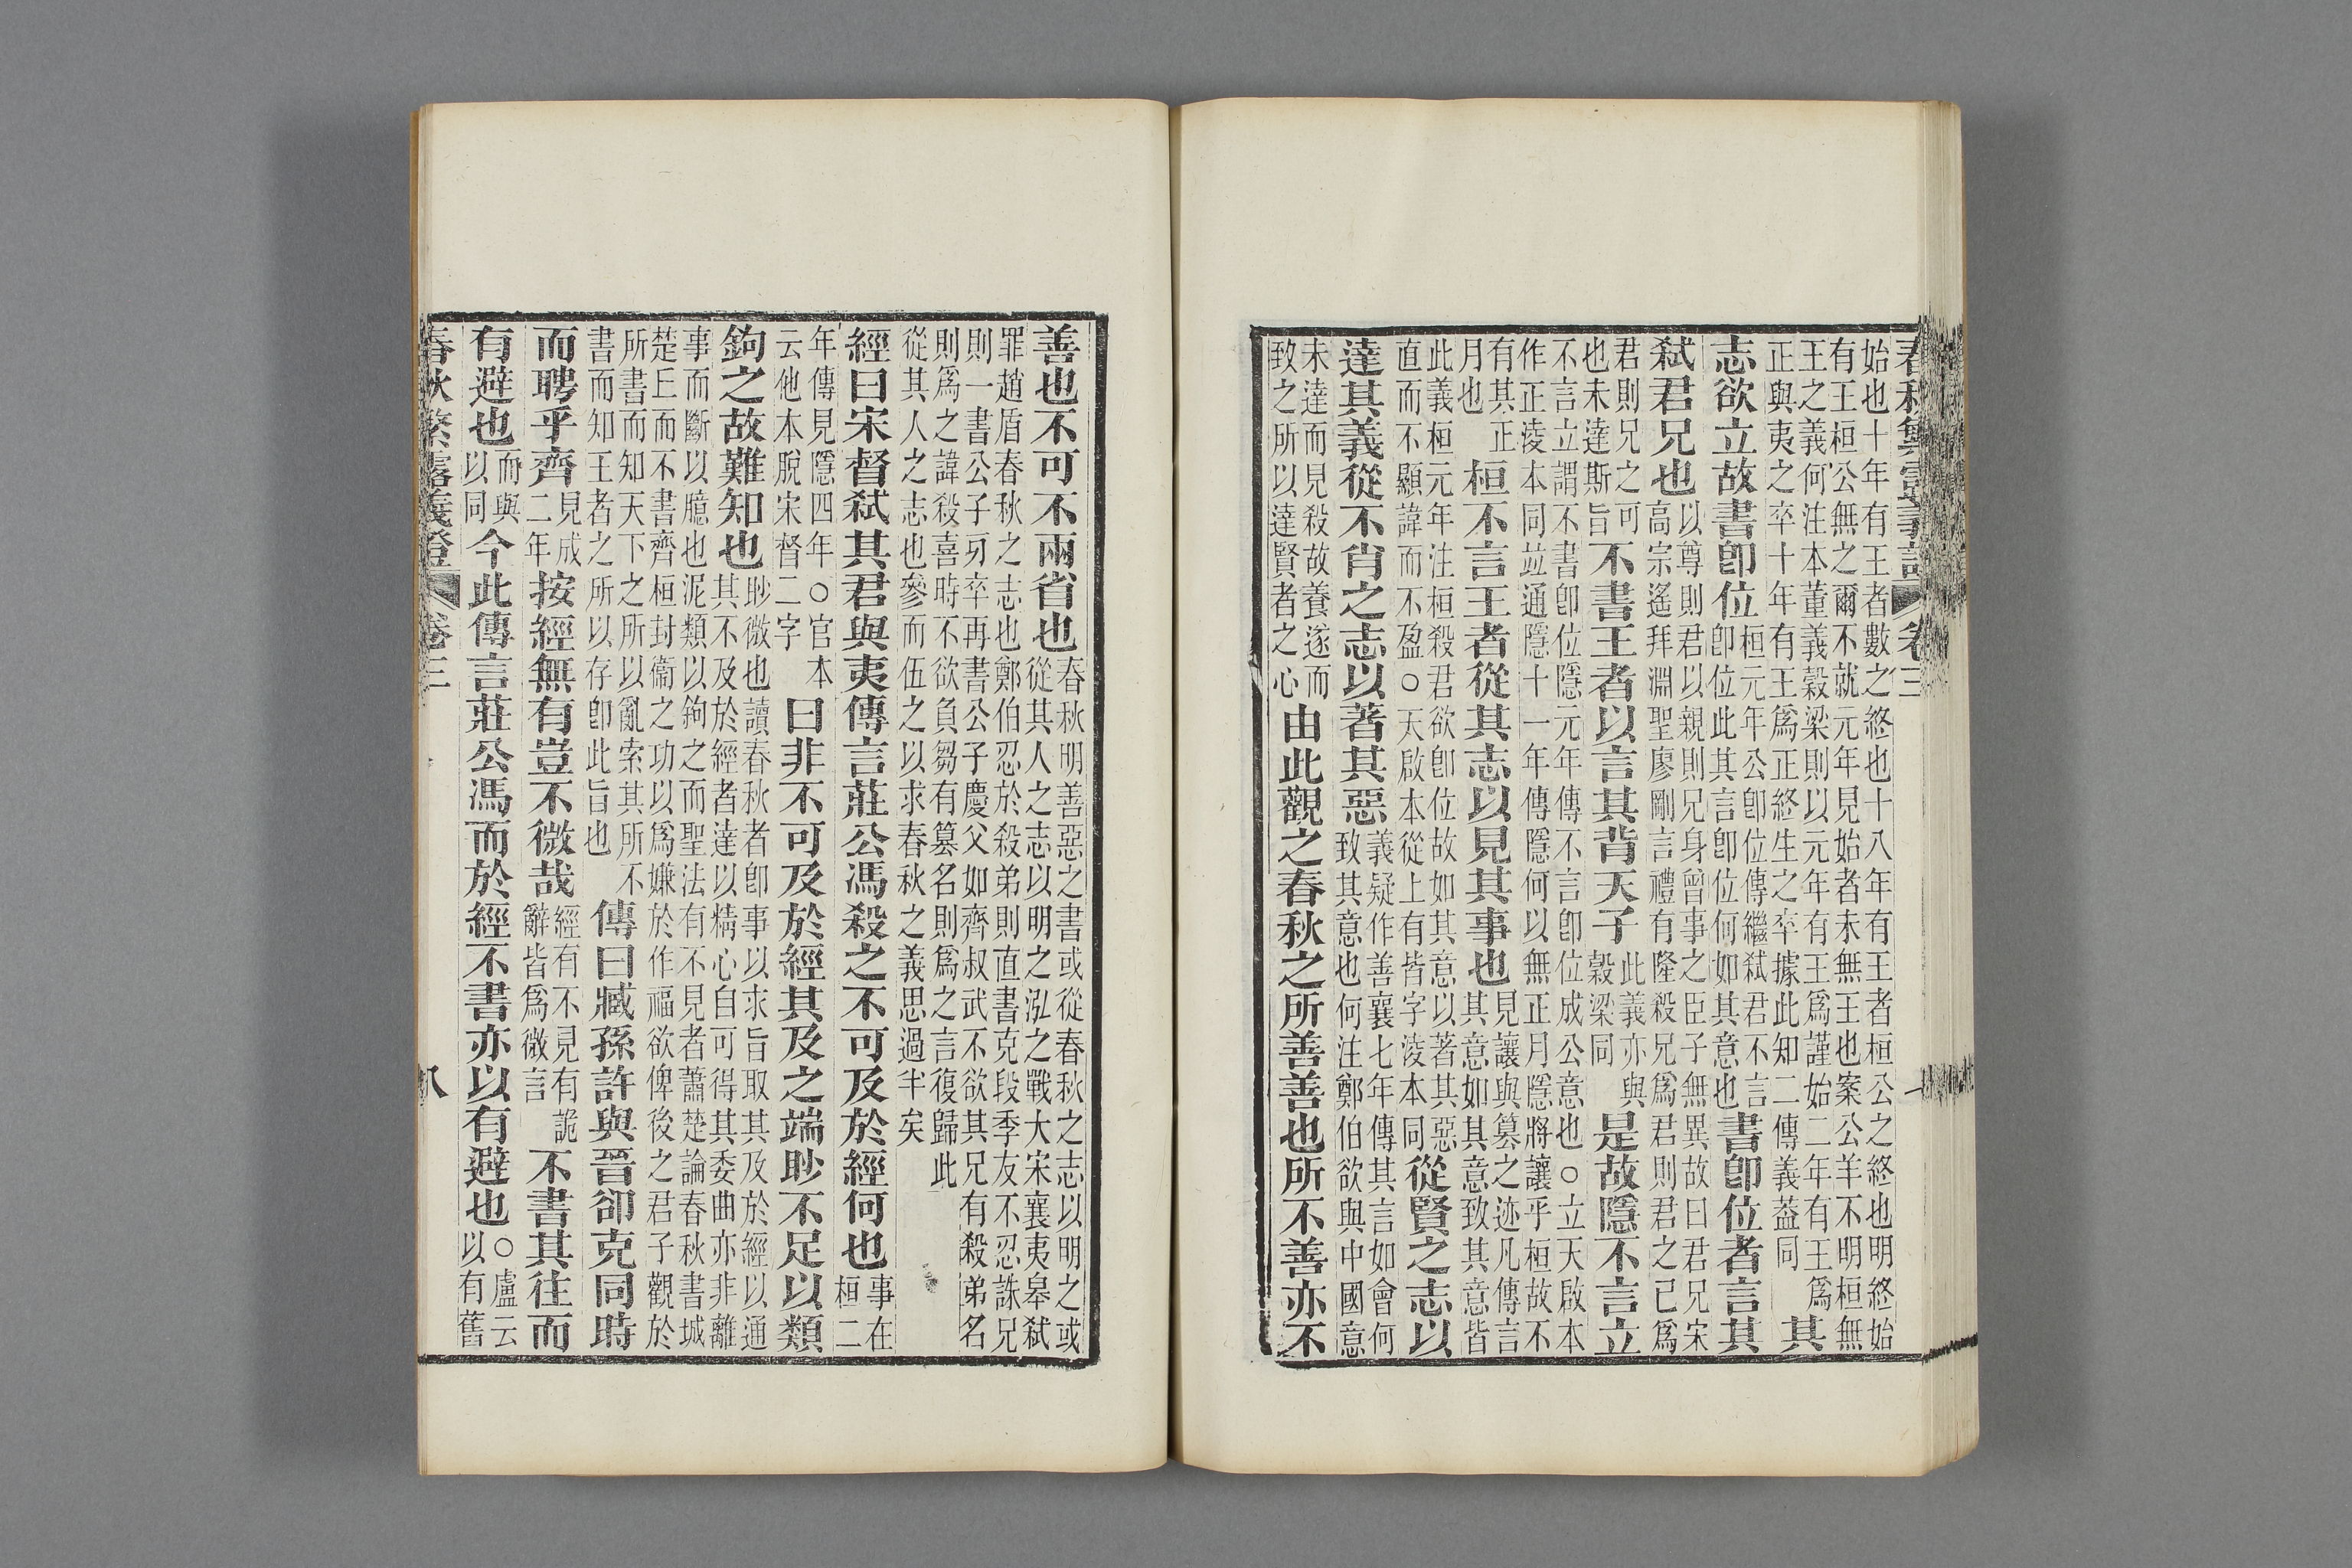 春秋繁露義證 卷三
始也十年有王者數之終也十八年有王者桓公之終也明終始
有王桓公無之爾不就元年見始者未無王也案公羊不明桓無
王之義何注本董義穀梁則以元年有王爲謹始二年有王爲
正與夷之卒十年有王爲正終生之卒據此知二傳義葢同
其
志欲立故書卽位
桓元年公卽位傳繼弒君不言
卽位此其言卽位何如其意也
書卽位者言其
弒君兄也
以尊則君以親則兄身曾事之臣子無異故曰君兄宋
高宗遙拜淵聖廖剛言禮有隆殺兄爲君則君之己爲
君則兄之可
也未達斯旨
不書王者以言其背天子
此義亦與
穀梁同
是故隱不言立
不言立謂不書卽位隱元年傳不言卽位成公意也○立天啟本
作正淩本同竝通隱十一年傳隱何以無正月隱將讓乎桓故不
有其正
月也
桓不言王者從其志以見其事也
見讓與簒之迹凡傳言
其意如其意致其意皆
此義桓元年注桓殺君欲卽位故如其意以著其惡
直而不顯諱而不盈○天啟本從上有皆字淩本同
從賢之志以
達其義從不肖之志以著其惡
義疑作善襄七年傳其言如會何
致其意也何注鄭伯欲與中國意
未達而見殺故養遂而
致之所以達賢者之心
由此觀之春秋之所善善也所不善亦不
善也不可不兩省也
春秋明善惡之書或從春秋之志以明之或
從其人之志以明之泓之戰大宋襄夷皋弒
罪趙盾春秋之志也鄭伯忍於殺弟則直書克段季友不忍誅兄
則一書公子牙卒再書公子慶父如齊叔武不欲其兄有殺弟名
則爲之諱殺喜時不欲負芻有簒名則爲之言復歸此
從其人之志也參而伍之以求春秋之義思過半矣
經曰宋督弒其君與夷傳言莊公馮殺之不可及於經何也
事在
桓二
年傳見隱四年○官本
云他本脫宋督二字
曰非不可及於經其及之端眇不足以類
鉤之故難知也
眇微也讀春秋者卽事以求旨取其及於經以通
其不及於經者達以精心自可得其委曲亦非離
事而斷以臆也泥類以鉤之而聖法有不見者蕭楚論春秋書城
楚丘而不書齊桓封衞之功以爲嫌於作福欲俾後之君子觀於
所書而知天下之所以亂索其所不
書而知王者之所以存卽此旨也
傳曰臧孫許與晉卻克同時
而聘乎齊
見成
二年
按經無有豈不微哉
經有不見有詭
辭皆爲微言
不書其往而
有避也
而與
以同
今此傳言莊公馮而於經不書亦以有避也
○盧云
以有舊
春秋繁露義證 卷三 八